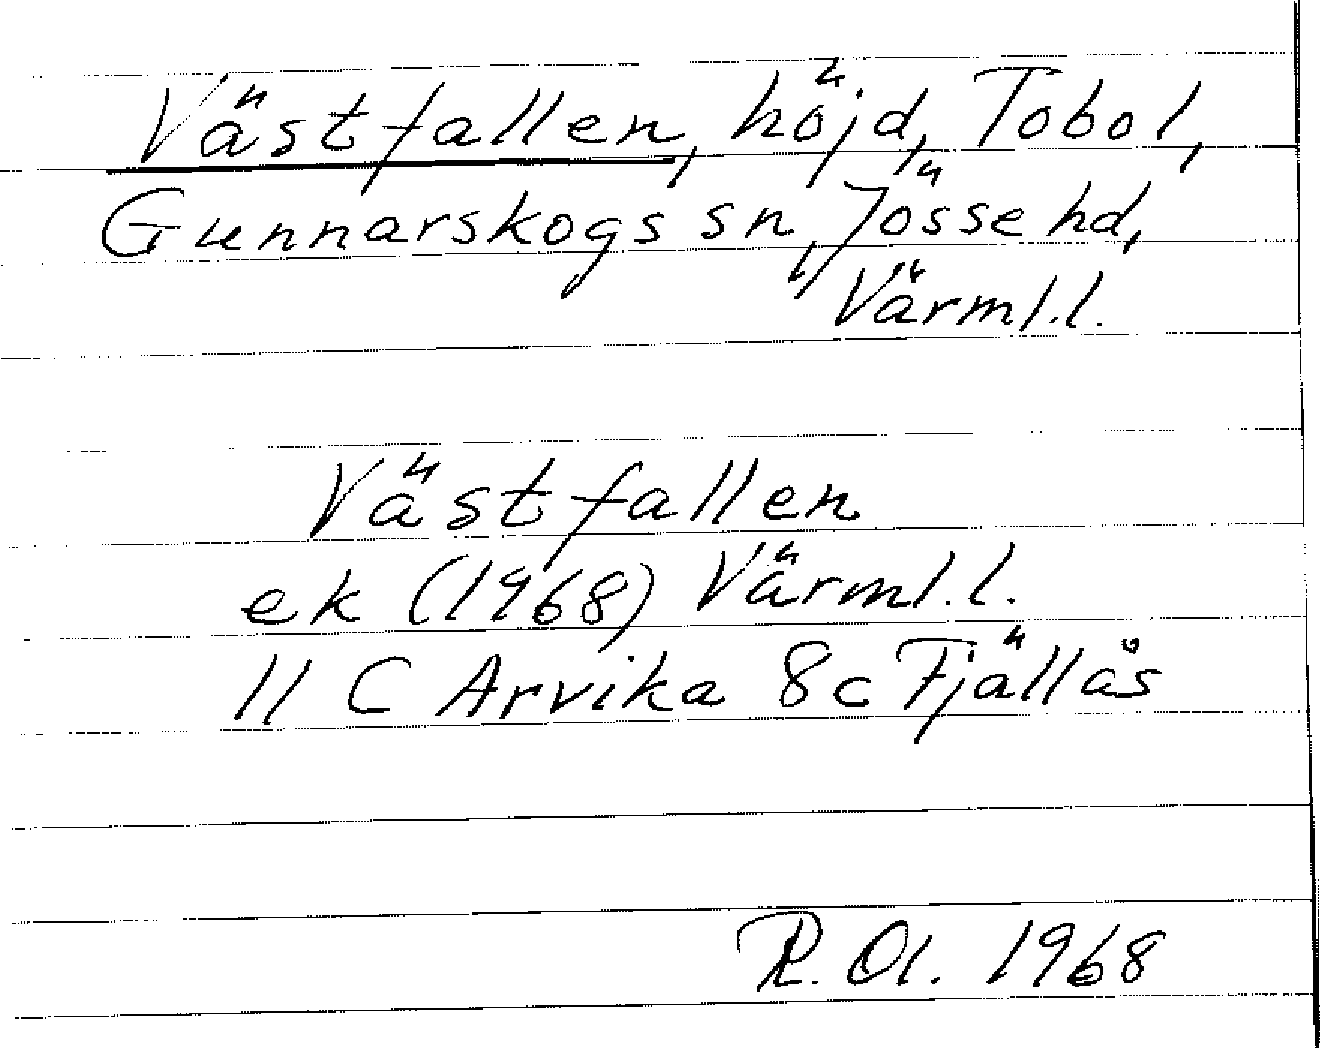 Västfallen, höjd, Tobol,
Gunnarskogs sn, Jösse hd,
Värml.l.
Västfallen
ek (1968) Värml.l.
11 C Arvika 8c Fjällås
R. Ol. 1968